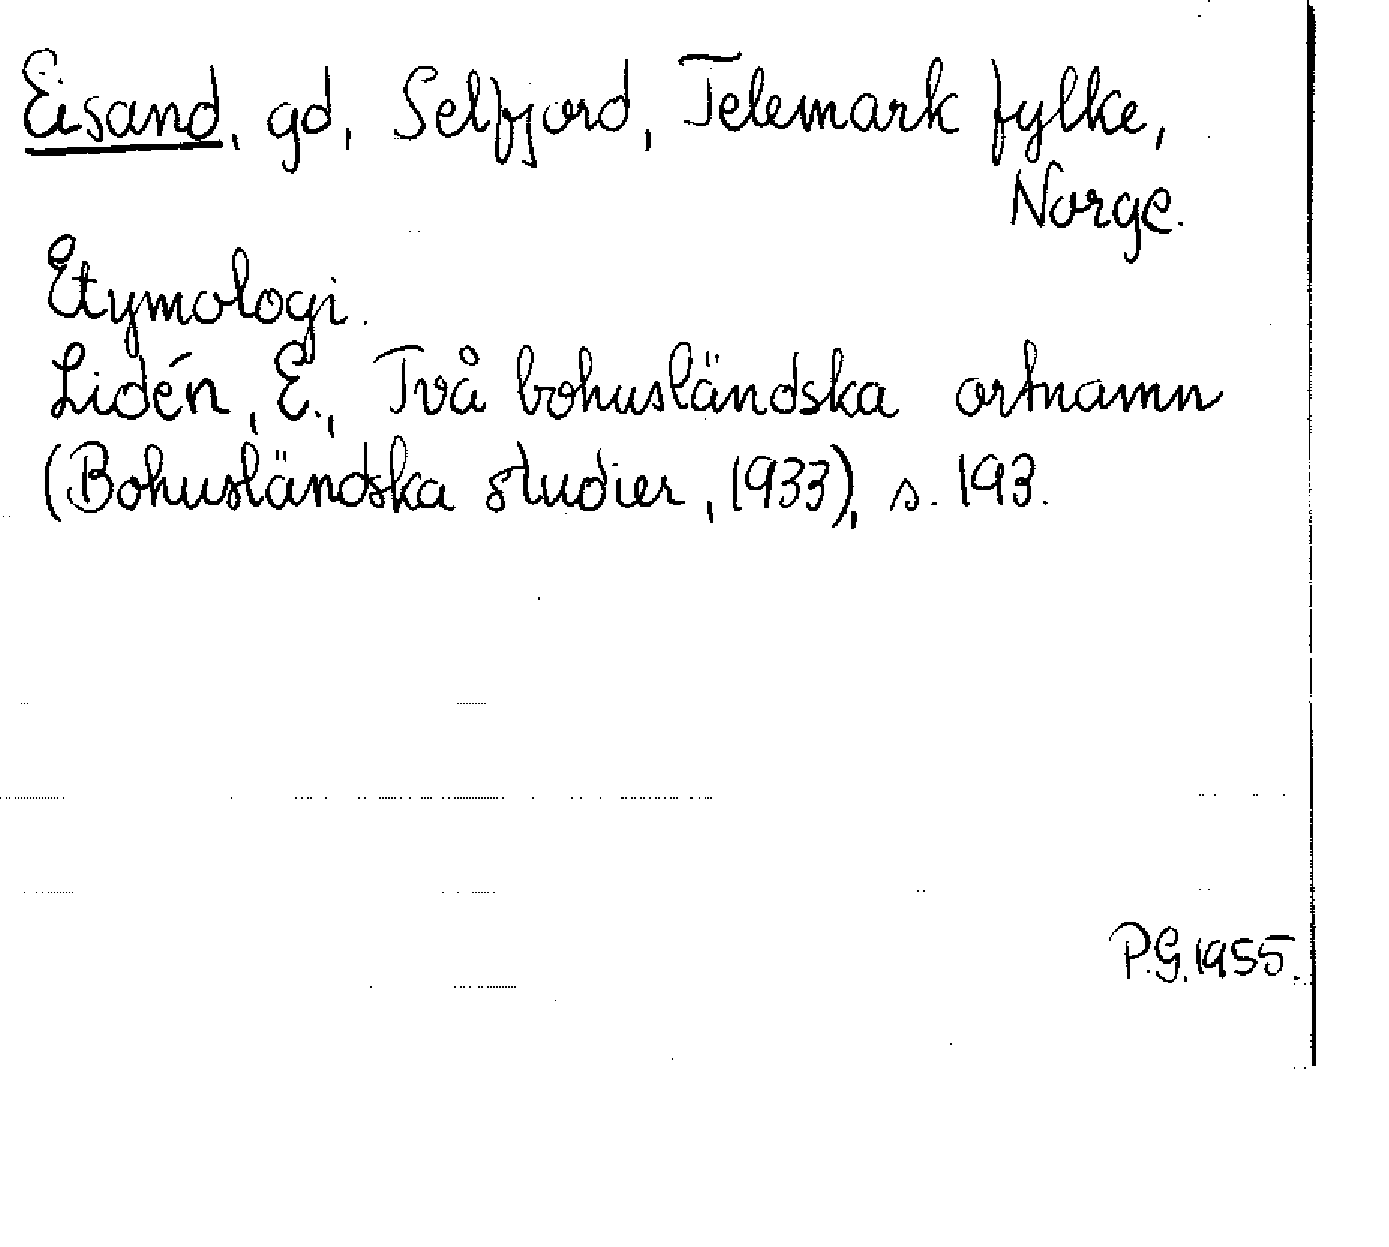 Eisand, gd, Selfjord, Telemark fylke,
Norge.
Etymologi.
Lidén, E., Två bohusländska ortnamn
(Bohusländska studier, 1933), s. 193.
P.G. 1955.